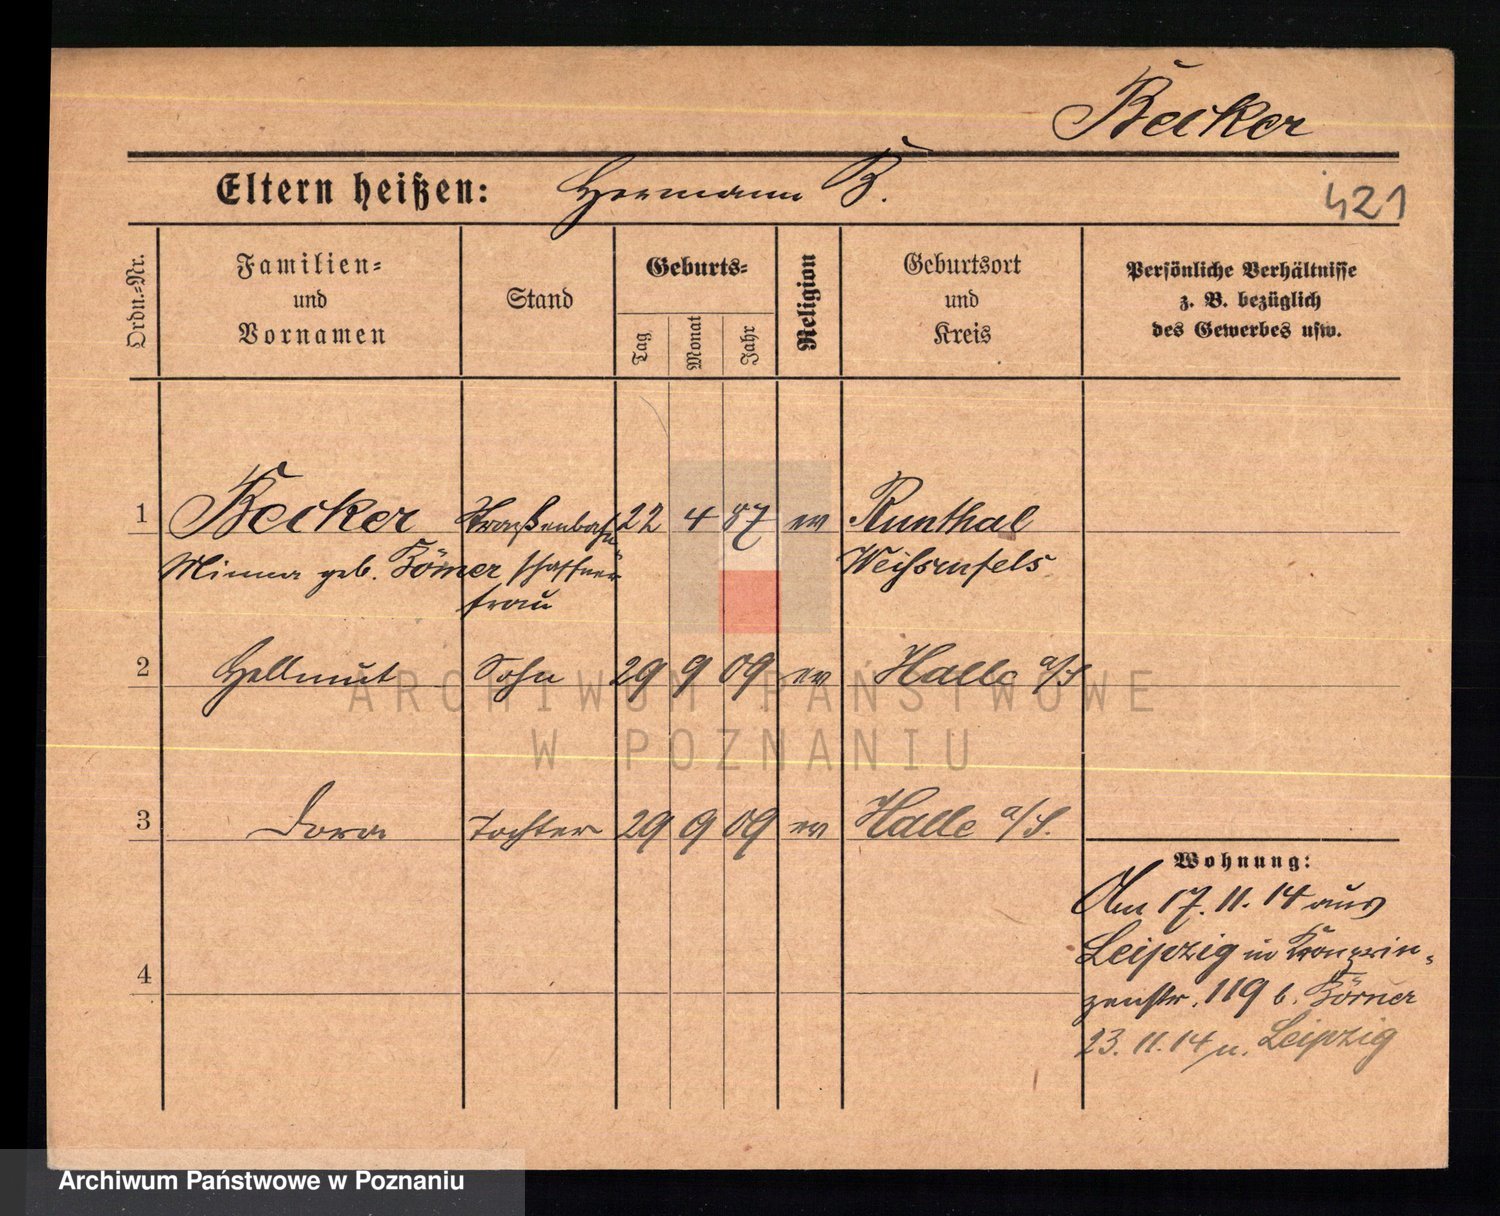 Becker
Eltern heißen: Hermann B.
421
Ordn.-Nr.
Familien-
und
Vornamen
Stand
Geburts-
Tag
Monat
Jahr
Religion
Geburtsort
und
Kreis
Persönliche Verhältnisse
z. B. bezüglich
des Gewerbes usw.
1 Becker Straßenbahn 22 4 87 ev Runthal
Minna geb. Körner schaffner Weißenfels
frau
2 Hellmut Sohn 29 9 09 ev Halle a/S
ARCHIWUM PAŃSTWOWE
W POZNANIU
3 Dora Tochter 29 9 09 ev Halle a/S.
Wohnung:
Am 17. 11. 14 aus
Leipzig in Kronprin-
zenstr. 119 b. Körner
4
23. 11. 14 n. Leipzig
Archiwum Państwowe w Poznaniu